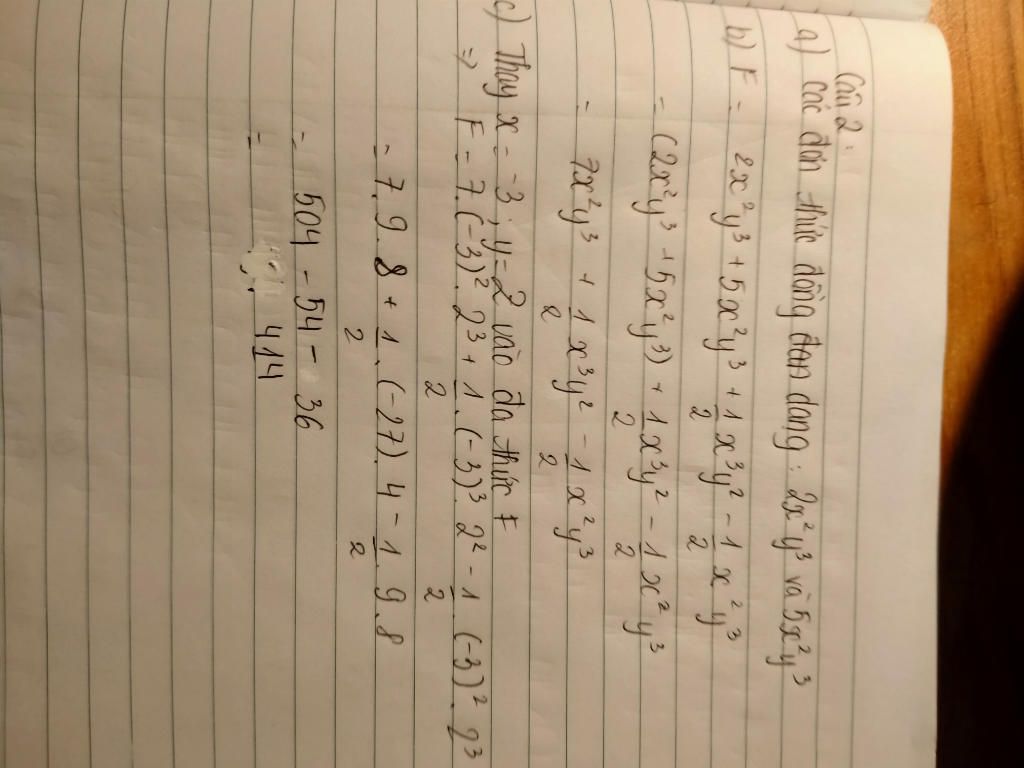 Câu 2:
a) Các đơn thức đồng đạn dạng : 2x²y³ và 5x²y³
b) F = 2x²y³ + 5x²y³ + 1/2 x³y² - 1/2 x²y³
= (2x²y³ + 5x²y³) + 1/2 x³y² - 1/2 x²y³
= 7x²y³ + 1/2 x³y² - 1/2 x²y³
c) Thay x = -3 ; y = 2 vào đa thức F
=> F = 7.(-3)².2³ + 1/2.(-3)³.2² - 1/2.(-3)².2³
= 7.9.8 + 1/2.(-27).4 - 1/2.9.8
= 504 - 54 - 36
= 414